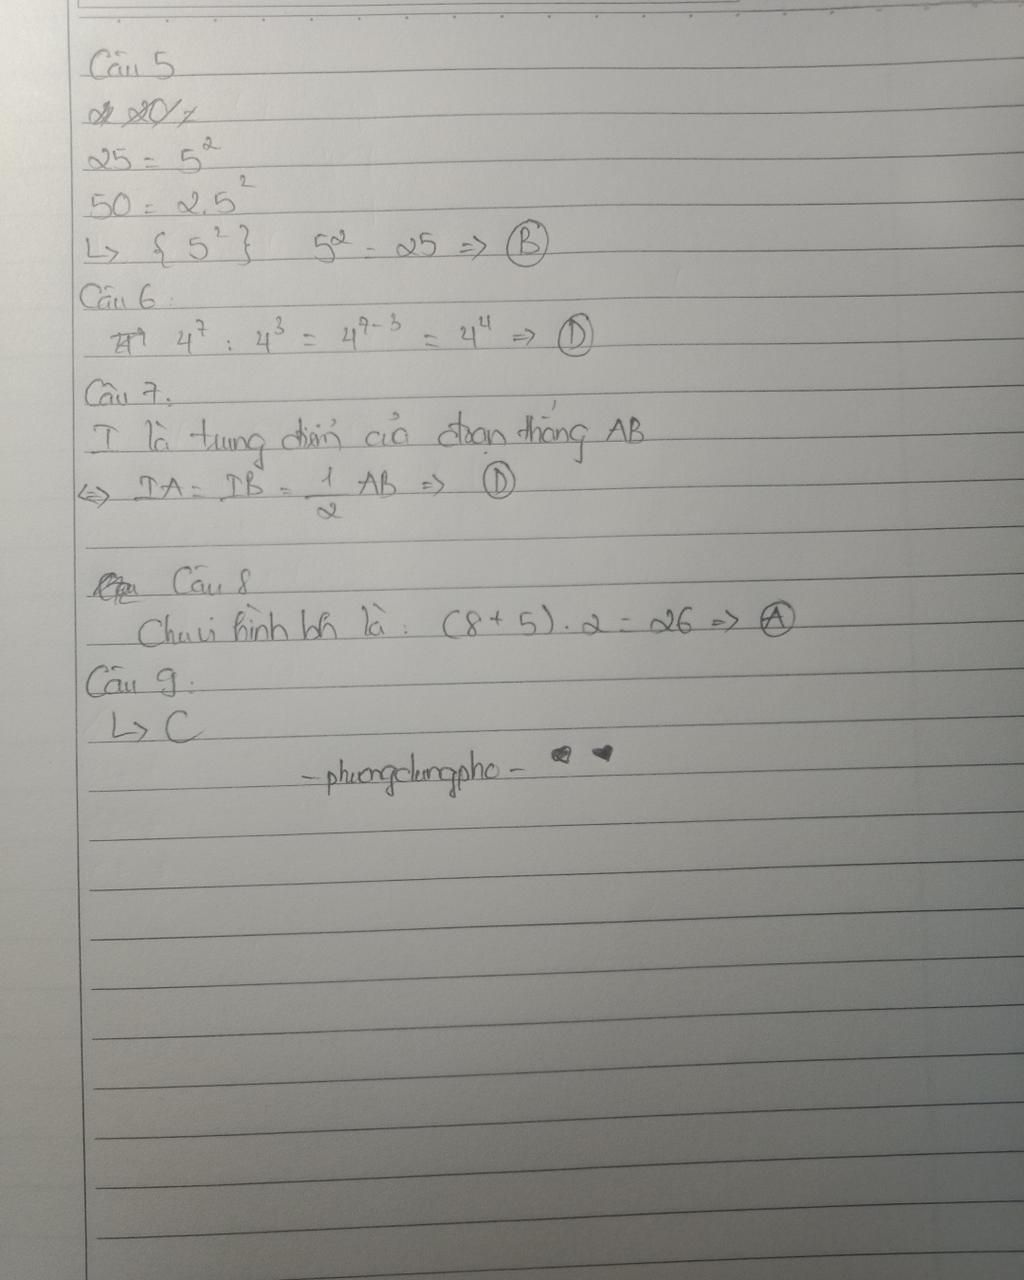 Câu 5
25 = 5²
50 = 2.5²
↳ { 5² } 5² = 25 => B
Câu 6:
4⁷ : 4³ = 4⁷⁻³ = 4⁴ => D
Câu 7.
I là trung điểm của đoạn thẳng AB
<=> IA = IB = 1/2 AB => D
Câu 8
Chu vi hình bh là : (8 + 5) . 2 = 26 => A
Câu 9:
↳ C